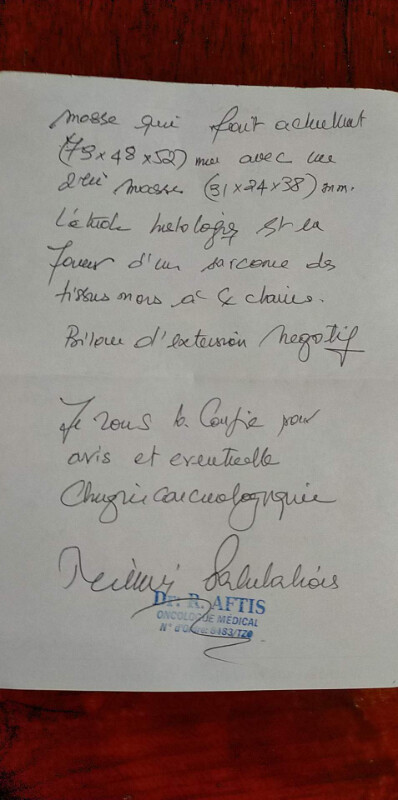 masse qui fait actuellement
(73 x 48 x 52) mm avec une
masse (31 x 24 x 38) mm.
L'étude histologique est en
faveur d'un sarcome des
tissus mous à claires.
Bilan d'extension négatif
Je vous la confie pour
avis et eventuelle
Chirurgie carcinologique
Meilleures Salutations
Dr. R. AFTIS
ONCOLOGUE MEDICAL